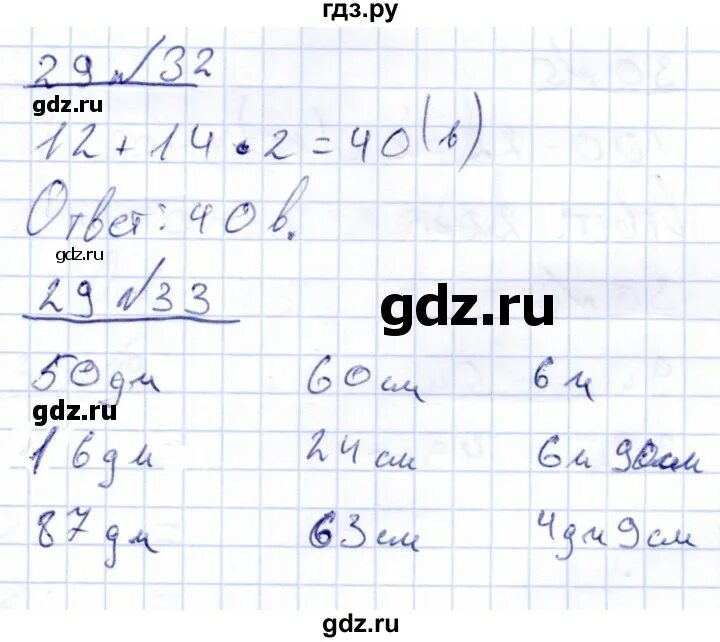 гдз.ру
29 №32
gdz.ru
12 + 14 • 2 = 40 (в)
Ответ: 40 в.
gdz.ru
29 №33
gdz.ru
50 дм 60 см 6 м
gdz.ru
16 дм 24 см 6 м 90 см
87 дм 63 см 4 дм 9 см
gdz.ru